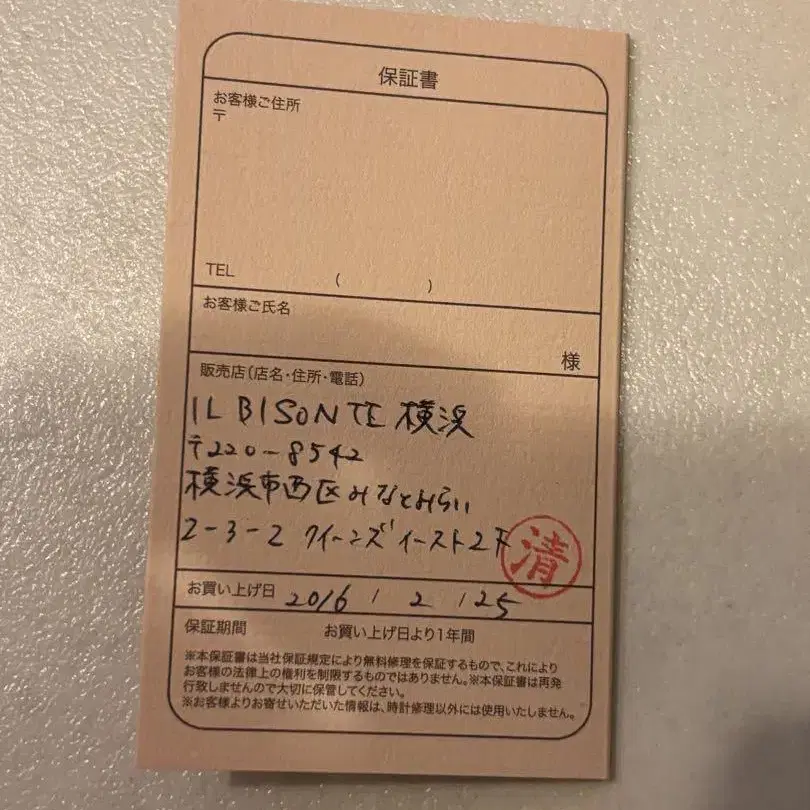 保証書
お客様ご住所
〒
TEL ( )
お客様ご氏名
様
販売店(店名・住所・電話)
IL BISONTE 横浜
〒220-8542
横浜市西区みなとみらい
2-3-2 クイーンズイースト2F
清
お買い上げ日 2016 / 2 / 25
保証期間 お買い上げ日より1年間
※本保証書は当社保証規定により無料修理を保証するもので、これにより
お客様の法律上の権利を制限するものではありません。※本保証書は再発
行致しませんので大切に保管してください。
※お客様よりお寄せいただいた情報は、時計修理以外には使用いたしません。